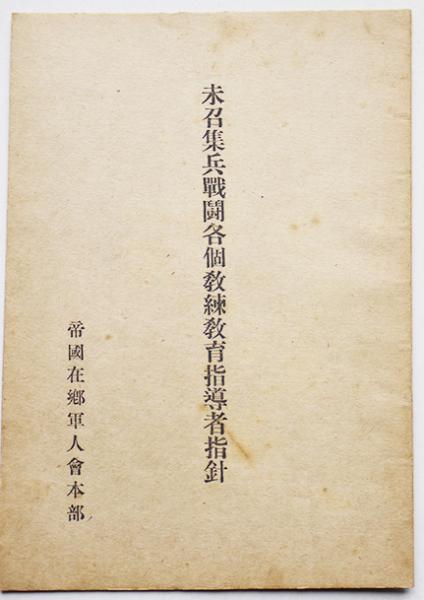 未召集兵戰鬪各個敎練敎育指導者指針
帝國在鄕軍人會本部